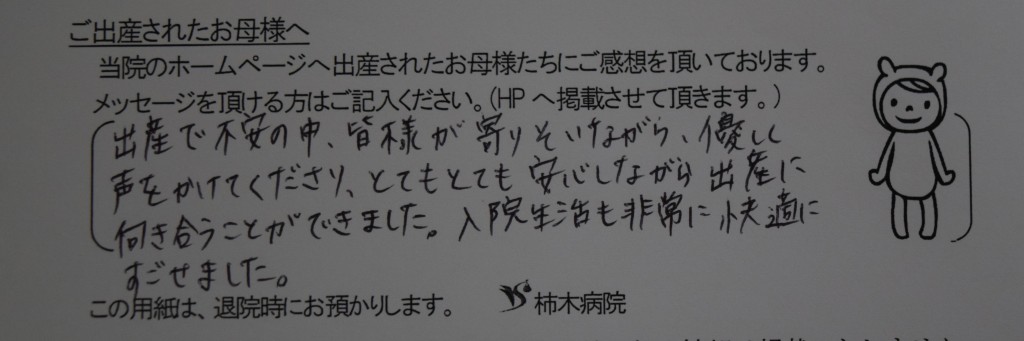 ご出産されたお母様へ
当院のホームページへ出産されたお母様たちにご感想を頂いております。
メッセージを頂ける方はご記入ください。(HPへ掲載させて頂きます。)
出産で不安の中、皆様が寄りそいながら、優しく
声をかけてくださり、とてもとても安心しながら出産に
向き合うことができました。入院生活も非常に快適に
すごせました。
この用紙は、退院時にお預かりします。
柿木病院